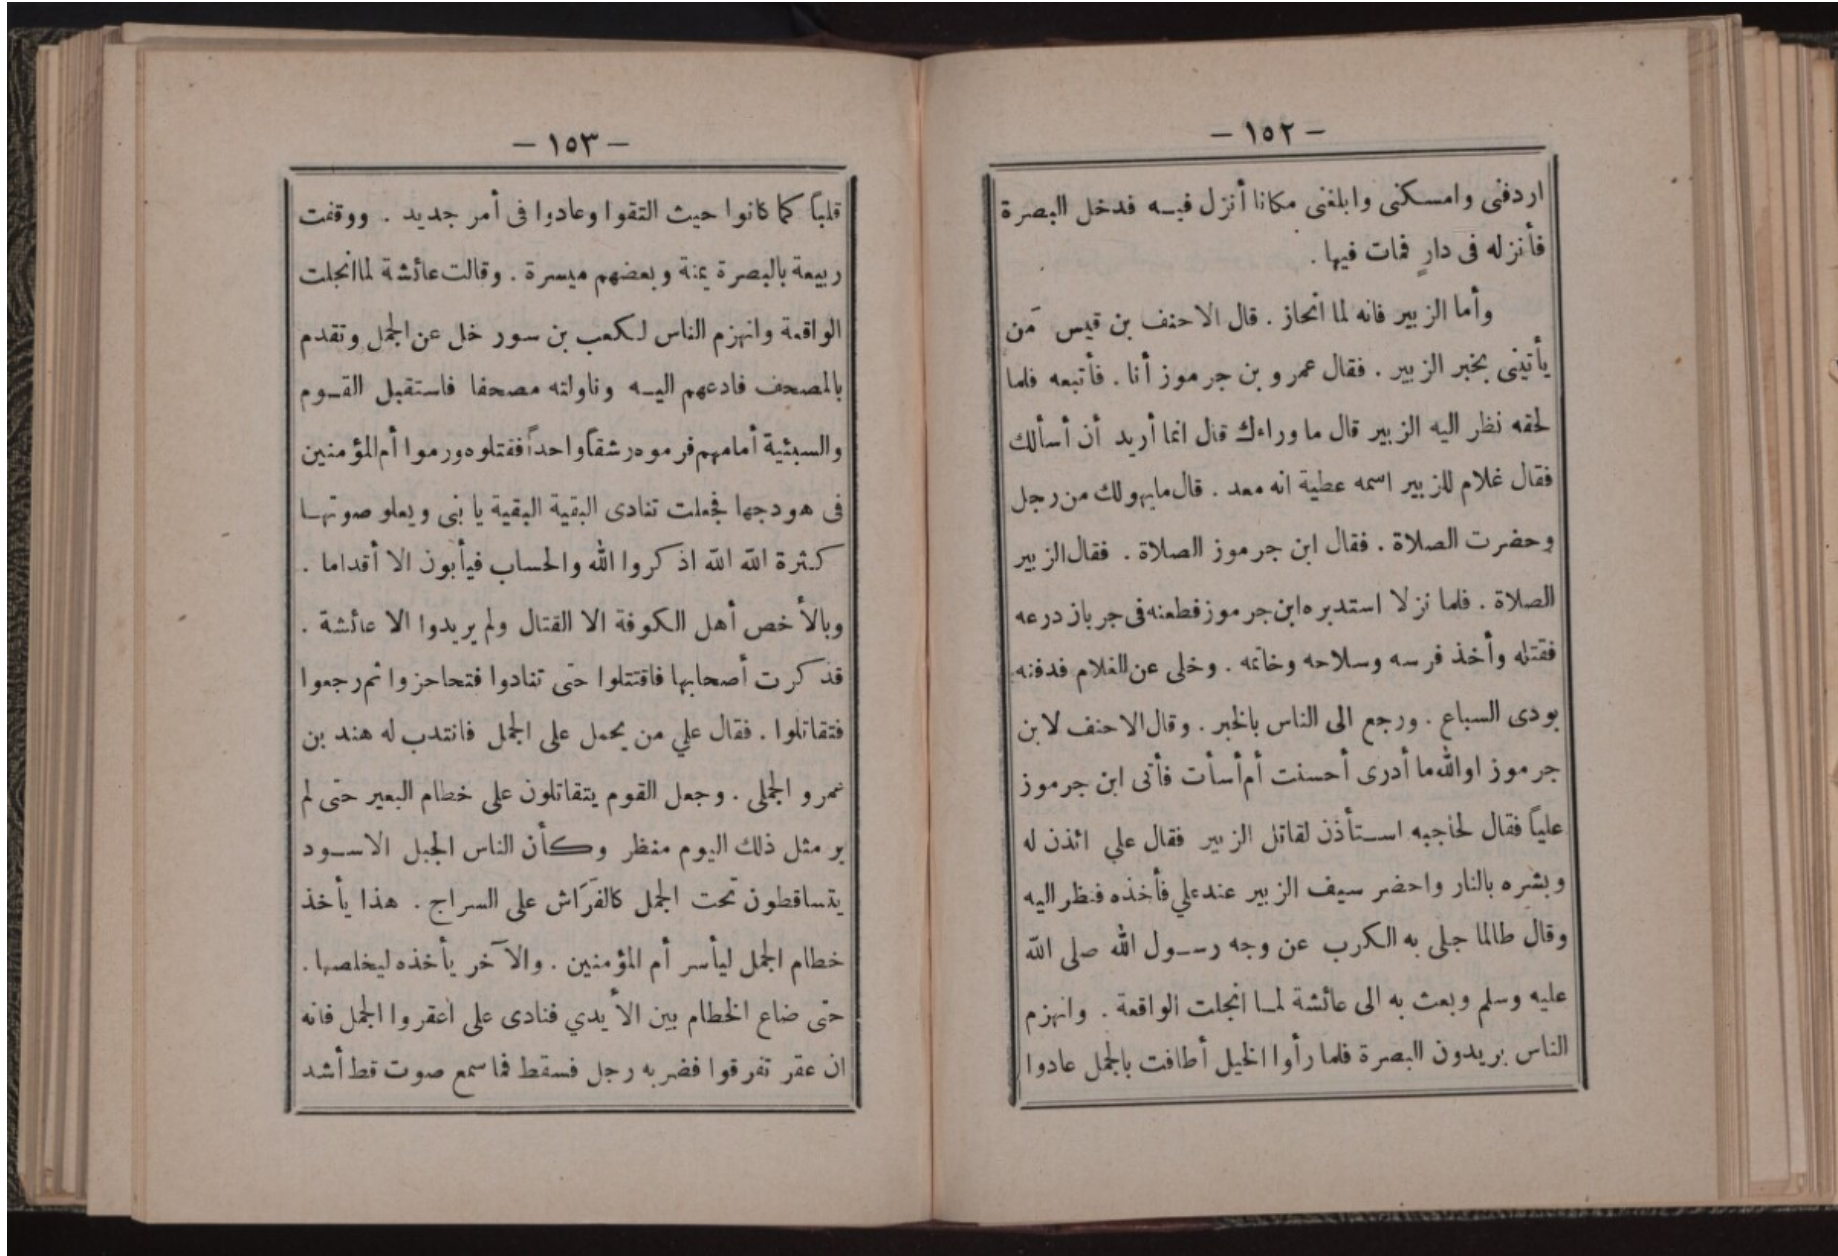 — ١٥٢ —
اردفنى وامسكنى وابلغنى مكانا أنزل فيه فدخل البصرة
فأنزله فى دارٍ فمات فيها .
وأما الزبير فانه لما انحاز . قال الاحنف بن قيس مَن
يأتينى بخبر الزبير . فقال عمرو بن جرموز أنا . فأتبعه فلما
لحقه نظر اليه الزبير قال ما وراءك قال انما أريد أن أسألك
فقال غلام للزبير اسمه عطية انه معد . قال مايهولك من رجل
وحضرت الصلاة . فقال ابن جرموز الصلاة . فقال الزبير
الصلاة . فلما نزلا استدبره ابن جرموز فطعنه فى جربان درعه
فقتله وأخذ فرسه وسلاحه وخاتمه . وخلى عن الغلام فدفنه
بودى السباع . ورجع الى الناس بالخبر . وقال الاحنف لابن
جرموز اوالله ما أدرى أحسنت أم أسأت فأتى ابن جرموز
علياً فقال لحاجبه استأذن لقاتل الزبير فقال علي ائذن له
وبشره بالنار واحضر سيف الزبير عند علي فأخذه فنظر اليه
وقال طالما جلى به الكرب عن وجه رسول الله صلى الله
عليه وسلم وبعث به الى عائشة لما انجلت الواقعة . وانهزم
الناس يريدون البصرة فلما رأوا الخيل أطافت بالجمل عادوا
— ١٥٣ —
قلباً كما كانوا حيث التقوا وعادوا فى أمر جديد . ووقفت
ربيعة بالبصرة يمنة وبعضهم ميسرة . وقالت عائشة لما انجلت
الواقعة وانهزم الناس لكعب بن سور خل عن الجمل وتقدم
بالمصحف فادعهم اليه وناولته مصحفا فاستقبل القوم
والسبئية أمامهم فرموه رشقاً واحداً فقتلوه ورموا أم المؤمنين
فى هودجها فجعلت تنادى البقية البقية يا بنى ويعلو صوتها
كثرة الله الله اذكروا الله والحساب فيأبون الا أقداما .
وبالأخص أهل الكوفة الا القتال ولم يريدوا الا عائشة .
فذكرت أصحابها فاقتتلوا حتى تنادوا فتحاحزوا ثم رجعوا
فتقاتلوا . فقال علي من يحمل على الجمل فانتدب له هند بن
عمرو الجملى . وجعل القوم يتقاتلون على خطام البعير حتى لم
ير مثل ذلك اليوم منظر وكأن الناس الجبل الاسود
يتساقطون تحت الجمل كالفَرَاش على السراج . هذا يأخذ
خطام الجمل ليأسر أم المؤمنين . والآخر يأخذه ليخلصها .
حتى ضاع الخطام بين الأيدي فنادى على أعقروا الجمل فانه
ان عقر تفرقوا فضربه رجل فسقط فما سمع صوت قط أشد